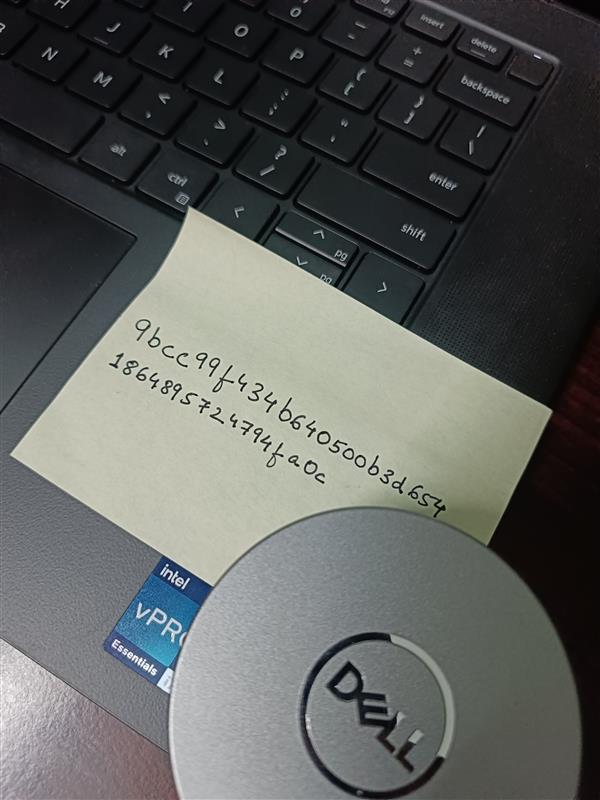 insert
delete
backspace
enter
shift
alt
ctrl
pg
pg
H
J
K
L
I
O
P
N
M
9bcc99f434b640500b3d654
1864895724794fa0c
intel
vPRO
Essentials
DELL